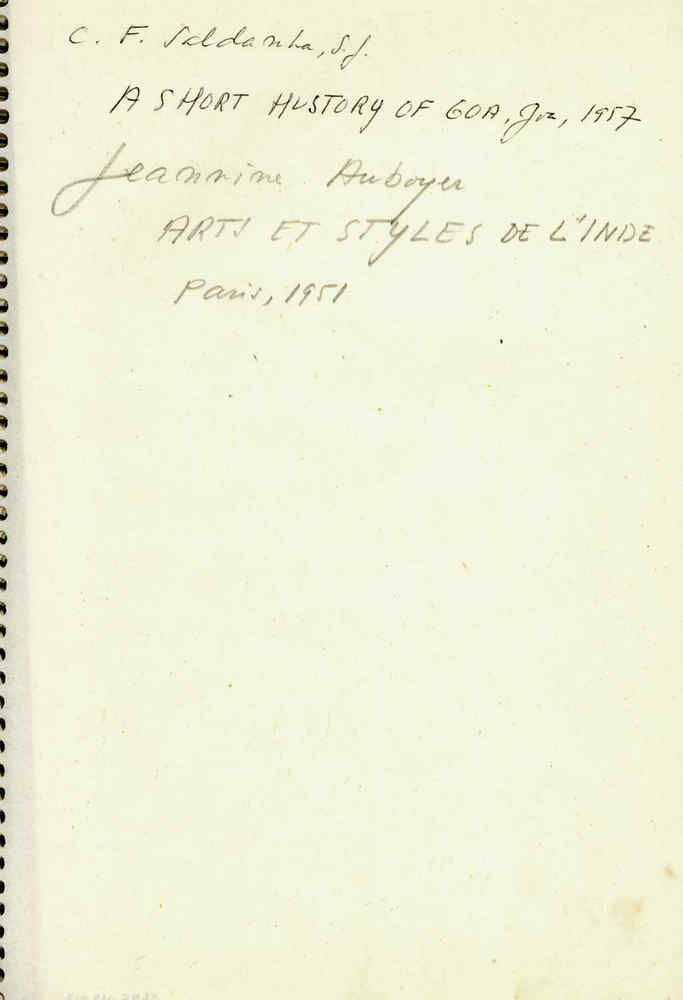 C. F. Saldanha, S.J.
A SHORT HISTORY OF GOA, Goa, 1957
Jeannine Auboyer
ARTS ET STYLES DE L'INDE
Paris, 1951